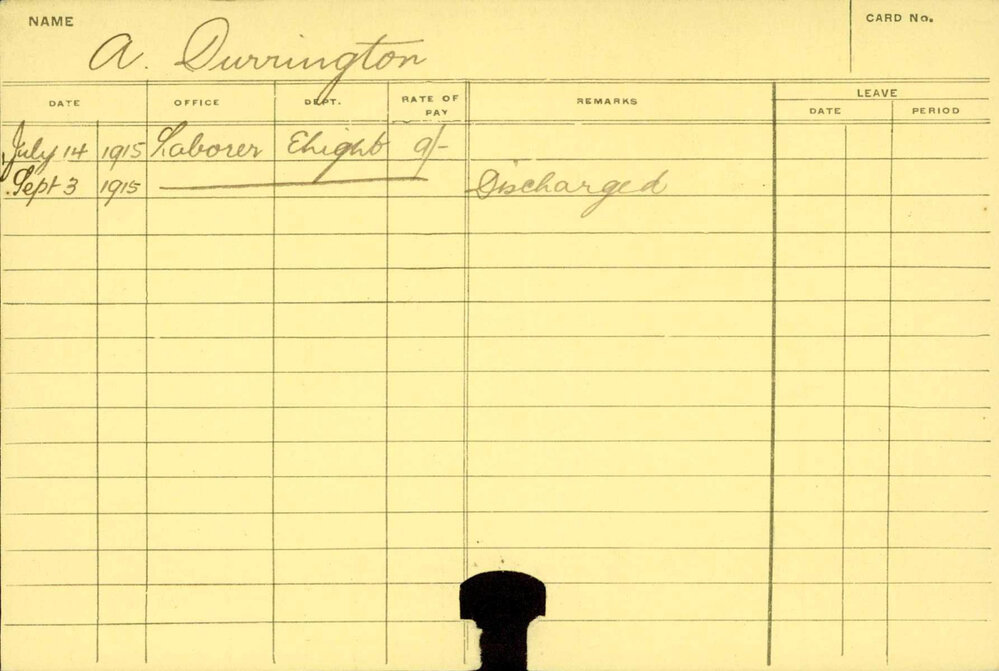 NAME
CARD No.
A. Durrington
DATE OFFICE DEPT. RATE OF PAY REMARKS LEAVE
DATE PERIOD
July 14 1915 Laborer Elight 9/-
Sept 3 1915 Discharged